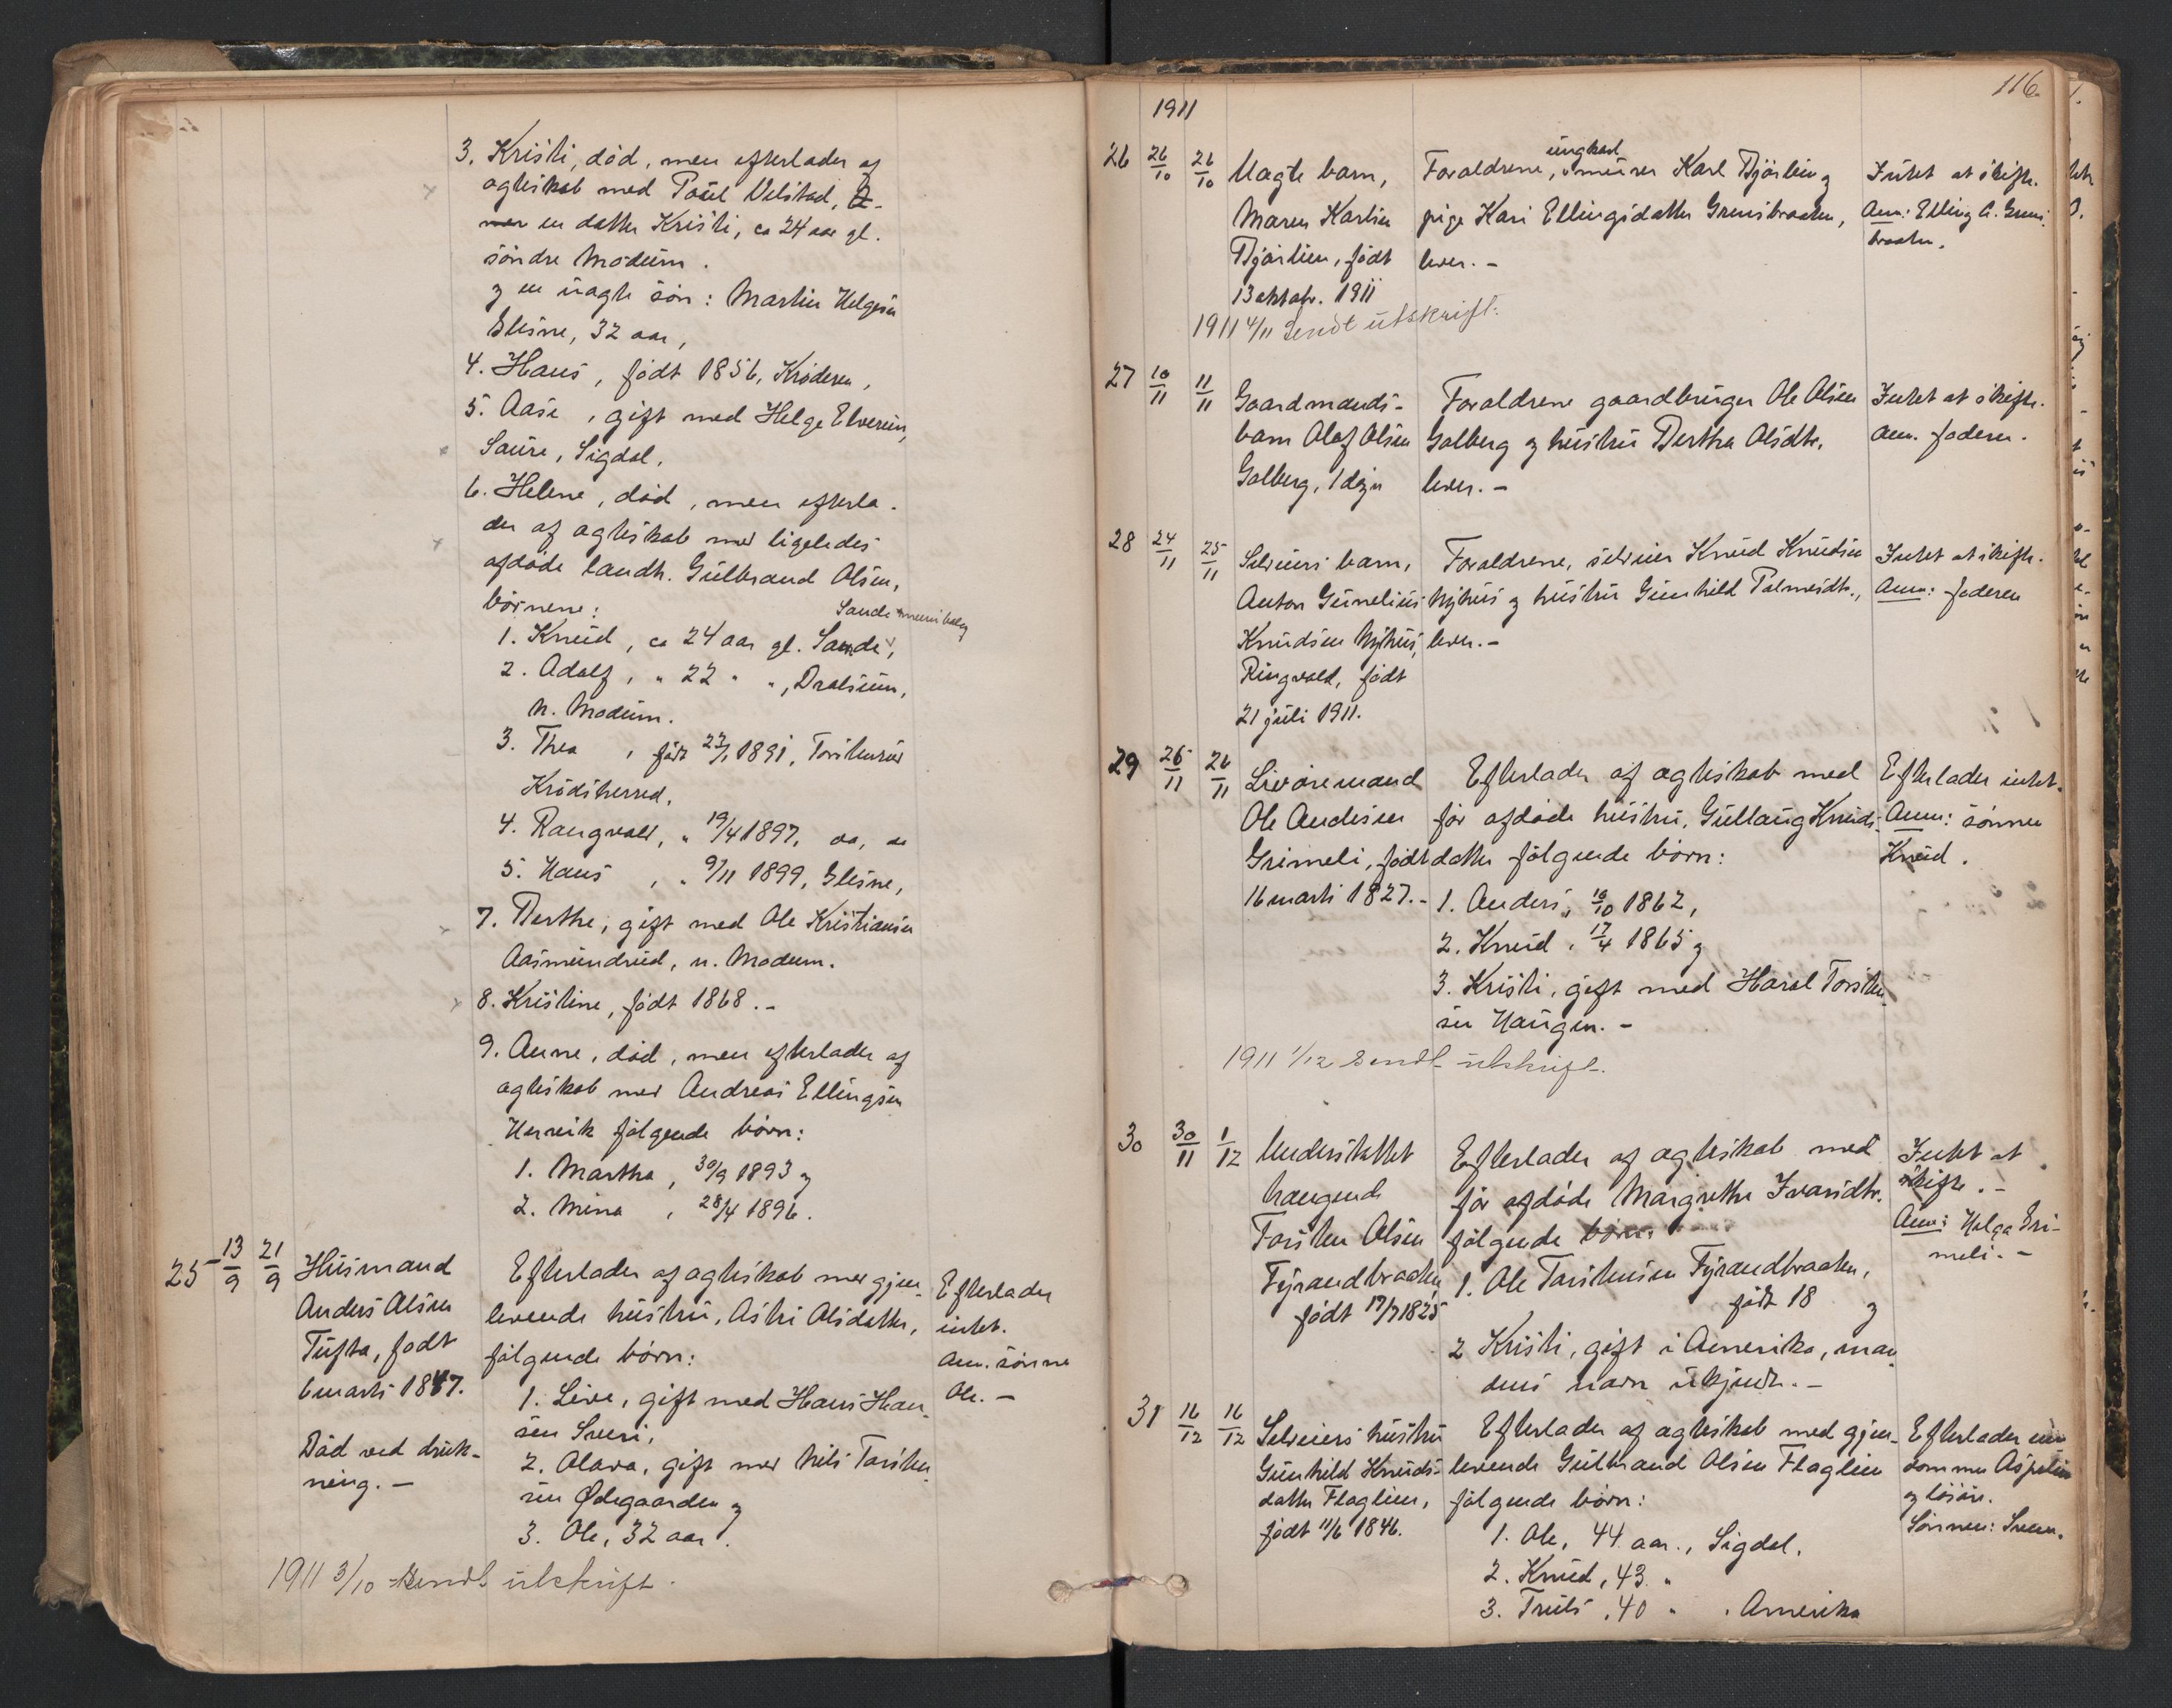 3. Kristi, død, men efterlader af
ægteskab med Paul Velstad,
en datter Kristi, ca 24 aar gl.
søndre Modum.
og en uægte søn: Martin Helgesen
Glesne, 32 aar,
4. Hans, født 1856, Krøderen,
5. Aase, gift med Helge Elverum,
Saure, Sigdal.
6. Helene, død, men efterla-
der af ægteskab med ligeledes
afdøde landh. Gulbrand Olsen,
børnene:
1. Knud, ca 24 aar gl. Sande,
2. Adolf, " 22 " ", Dralsum,
N. Modum.
3. Thea, født 23/1 1891,
Krødsherred.
4. Rangvald, " 19/4 1897, do, do
5. Hans, " 9/11 1899, Glesne,
7. Berthe, gift med Ole Kristiansen
Aasmundrud, n. Modum.
8. Kristine, født 1868.-
9. Anne, død, men efterlader af
ægteskab med Andreas Ellingsen
Henrik følgende børn:
1. Martha, 30/9 1893 og
2. Mina, 28/4 1896.
25 13/9 21/9 Husmand
Anders Olsen
Tufta, født
6 marts 1847.
Død ved druk-
ning.-
Efterlader af ægteskab med gjen-
levende hustru, Astri Olsdatter,
følgende børn:
1. Live, gift med Hans Han-
sen Sveri,
2. Olava, gift med Nils Torsten-
sen Ødegaarden og
3. Ole, 32 aar.
Efterlader
intet.
Anm. sønne
Ole.-
1911 3/10 sendt utskrift.
116.
1911
26 26/10 26/10 Uægte barn,
Maren Karlsen
Bjørlien, født
13 oktob. 1911
Forældrene, ungkarl murer Karl Bjørlien og
pige Kari Ellingsdatter Grensbraaten,
lever.-
Intet at skifte.
Anm: Elling A. Grens-
braaten.
1911 4/11 Sendt utskrift.
27 10/11 11/11 Gaardmands-
barn Olaf Olsen
Golberg, 1 døgn
Forældrene gaardbruger Ole Olsen
Golberg og hustru Berthe Olsdtr.
lever.-
Intet at skifte.
Anm. faderen.
28 24/11 25/11 Selveiers barn,
Anton Gunelius
Knudsen Nyhus,
Ringvold, født
21 juli 1911.
Forældrene, selveier Knud Knudsen
Nyhus og hustru Gunhild Palmesdtr.,
lever.-
Intet at skifte.
Anm: faderen
29 25/11 26/11 Livøremand
Ole Andersen
Grimeli, født
16 marts 1827.-
Efterlader af ægteskab med
før afdøde hustru, Gullaug Knuds-
datter følgende børn:
1. Anders, 16/10 1862,
2. Knud, 17/4 1865 og
3. Kristi, gift med Haral Torsten-
sen Haugen.-
Efterlader intet.
Anm: sønnen
Knud.
1911 1/12 Sendt utskrift.
30 30/11 1/12 Understøttet
trængende
Torsten Olsen
Fyrandbraaten
født 17/7 1825
Efterlader af ægteskab med
før afdøde Margrethe Ivarsdtr.
følgende børn:
1. Ole Torstensen Fyrandbraaten,
født 18 og
2 Kristi, gift i Amerika, man-
dens navn ukjendt.-
Intet at
skifte.-
Anm: Helga Gri-
meli.-
31 16/12 16/12 Selveiers hustru
Gunhild Knuds-
datter Flaglien,
født 11/6 1846.
Efterlader af ægteskab med gjen-
levende Gulbrand Olsen Flaglien
følgende børn:
1. Ole, 44 aar., Sigdal.
2. Knud, 43 "
3. Truls, 40 " , Amerika
Efterlader eien-
dommen Aspelien
og løsøre.
Sønnen: Sven.